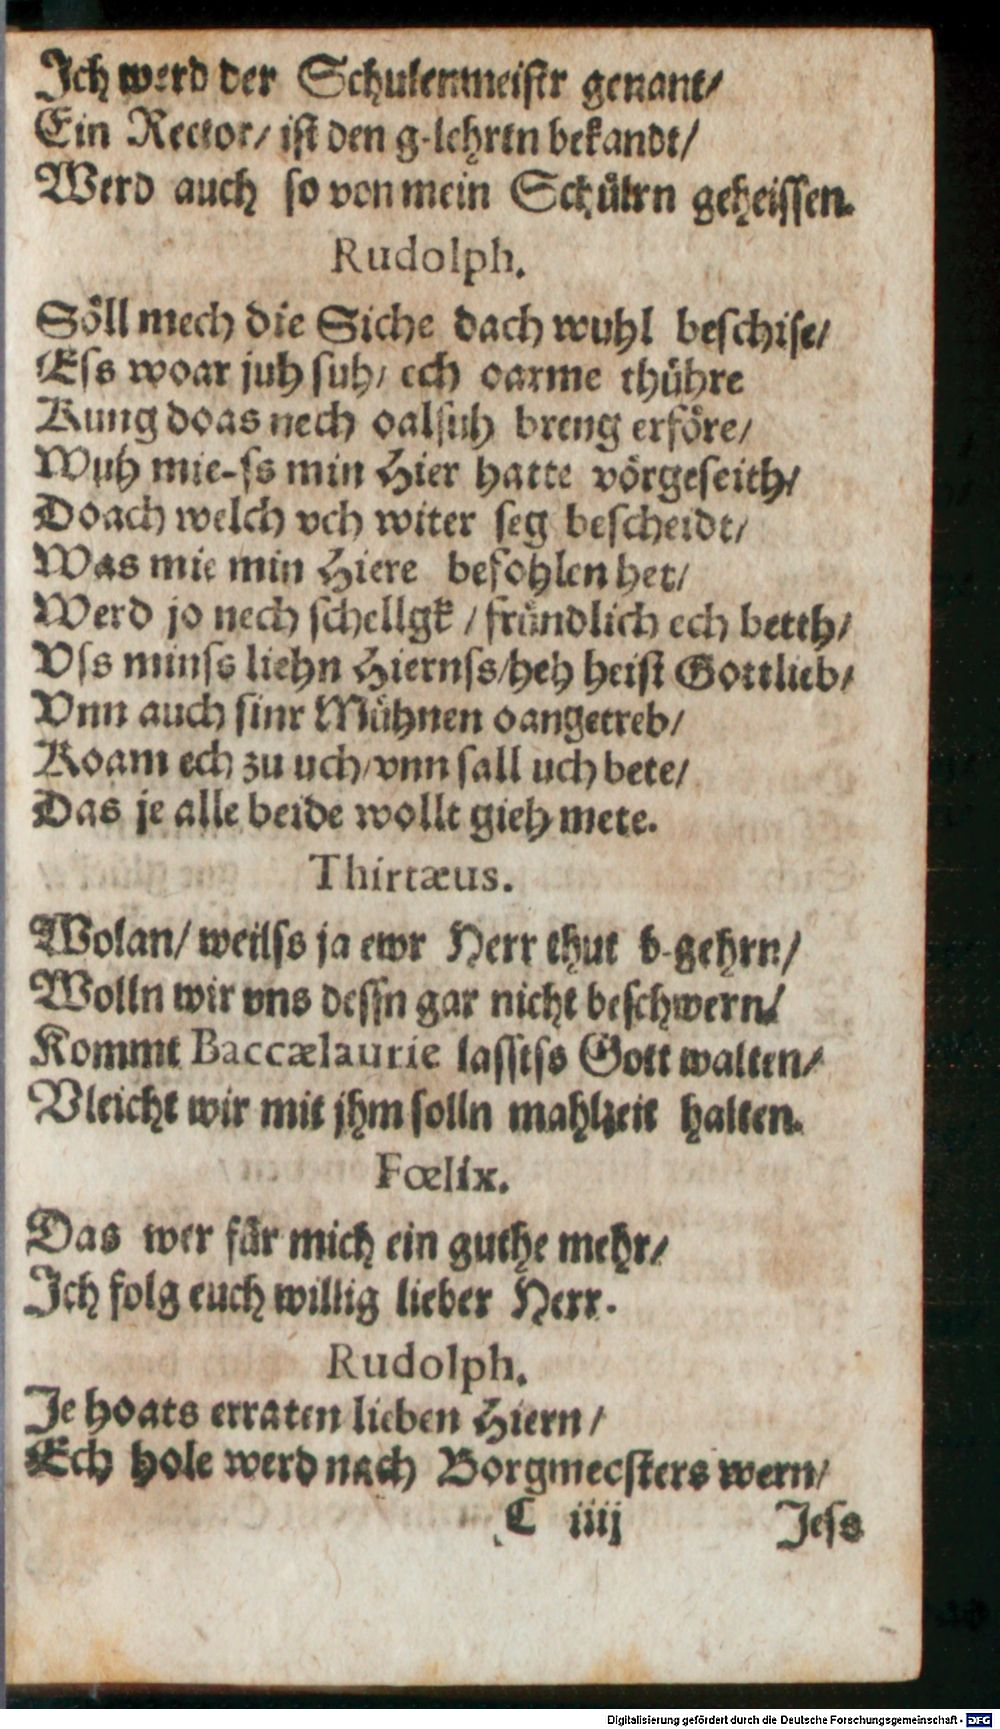 Ich werd der Schulenmeiſtr genant/
Ein Rector/ iſt den g-lehrtn bekandt/
Werd auch ſo von mein Schuͤlrn geheiſſen.
Rudolph.
Soͤll mech die Siche dach wuhl beſchiſe/
Eſs woar juh ſuh/ ech oarme thuͤhre
Kung doas nech oalſuh breng erfoͤre/
Wuh mie-ſs min Hier hatte voͤrgeſeith/
Doach welch vch witer ſeg beſcheidt/
Was mie min Hiere befohlen het/
Werd jo nech ſchellgk / fruͤndlich ech betth/
Vſs minſs liehn Hiernſs/heh heiſt Gottlieb/
Vnn auch ſinr Muͤhnen oangetreb/
Koam ech zu uch/vnn ſall uch bete/
Das je alle beide wollt gieh mete.
Thirtæus.
Wolan/ weilſs ja ewr Herr thut b-gehrn/
Wolln wir vns deſſn gar nicht beſchwern/
Kommt Baccælaurie laſſtſs Gott walten/
Vleicht wir mit jhm ſolln mahlzeit halten.
Fœlix.
Das wer fuͤr mich ein guthe mehr/
Ich folg euch willig lieber Herr.
Rudolph.
Je hoats erraten lieben Hiern/
Ech hole werd nach Borgmecſters wern/
C iiij Jeſs
Digitalisierung gefördert durch die Deutsche Forschungsgemeinschaft - DFG